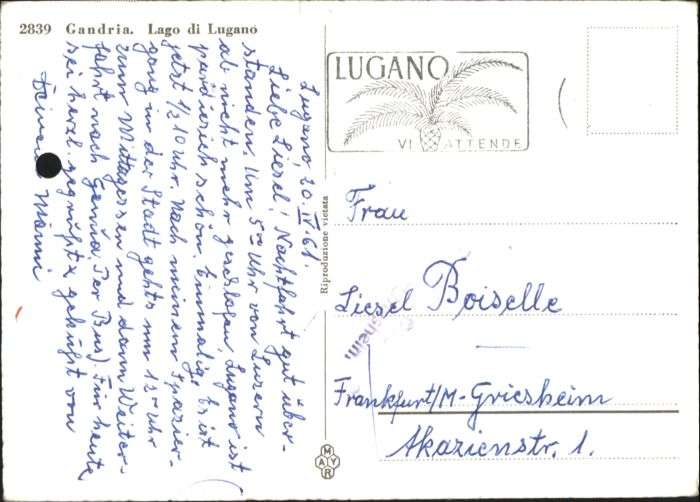 2839 Gandria. Lago di Lugano
Lugano 20.IV.61.
Liebe Liesel! Nachtfahrt gut über-
standen. Um 5 00 Uhr von Luzern
ab nicht mehr geschlafen. Lugano ist
paradiesisch schön. Einmalig. Es ist
jetzt 1/2 10 Uhr. Nach meinem Spazier-
gang in der Stadt gehts um 12 00 Uhr
zum Mittagessen und dann Weiter-
fahrt nach Genua (per Bus). Für heute
sei herzl. gegrüßt u. geküßt von
Deinem Männi
Riproduzione vietata
LUGANO
VI ATTENDE
Frau
Liesel Boiselle
Frankfurt/M-Griesheim
Akazienstr. 1.
MAYR